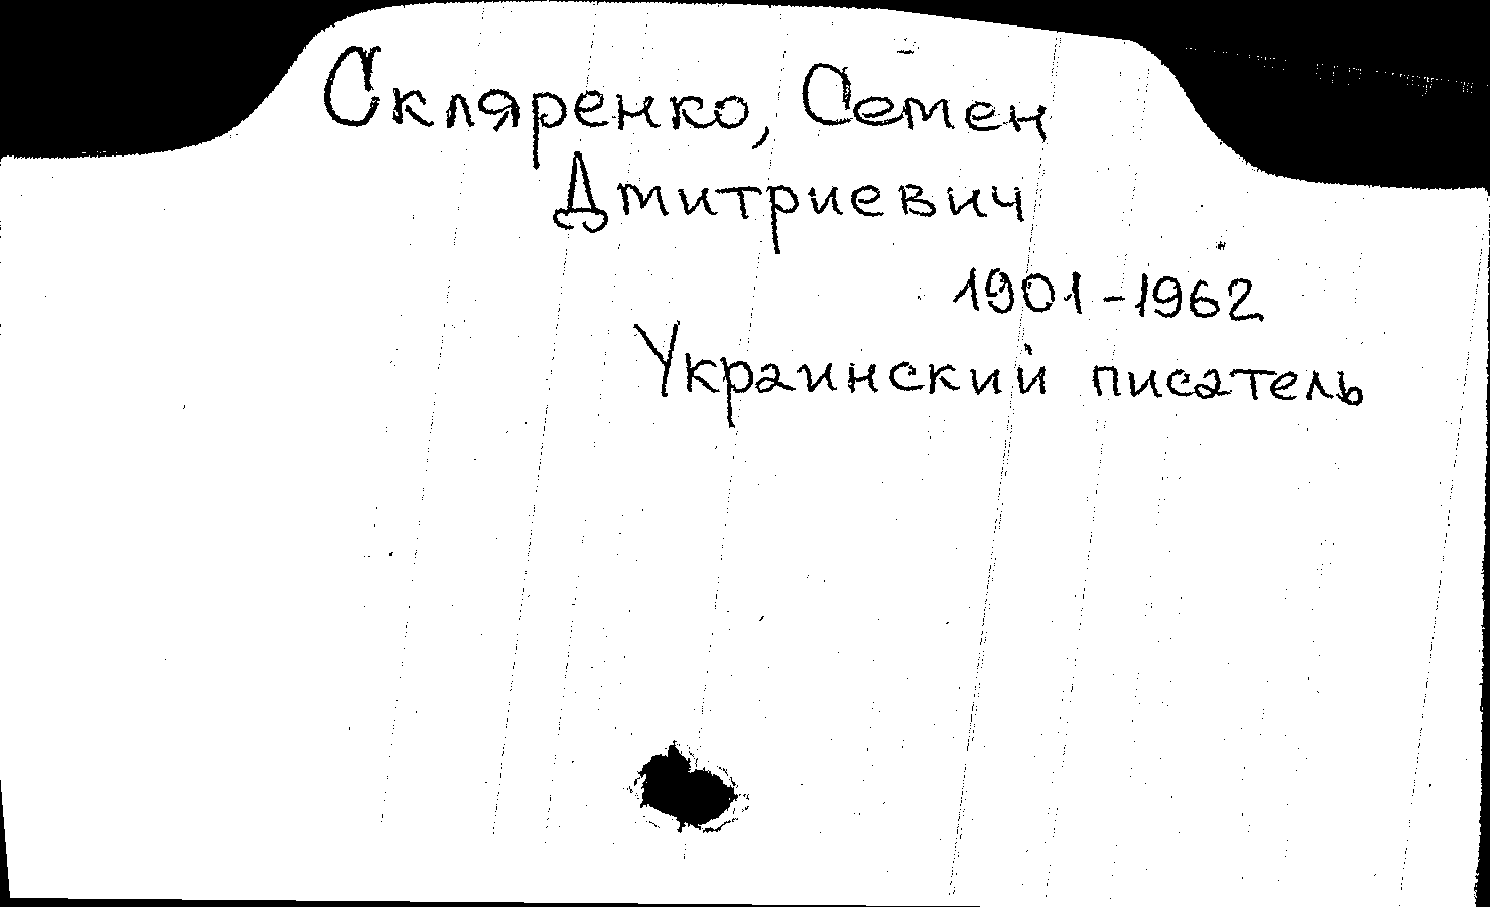 Скляренко, Семен
Дмитриевич
1901-1962
Украинский писатель